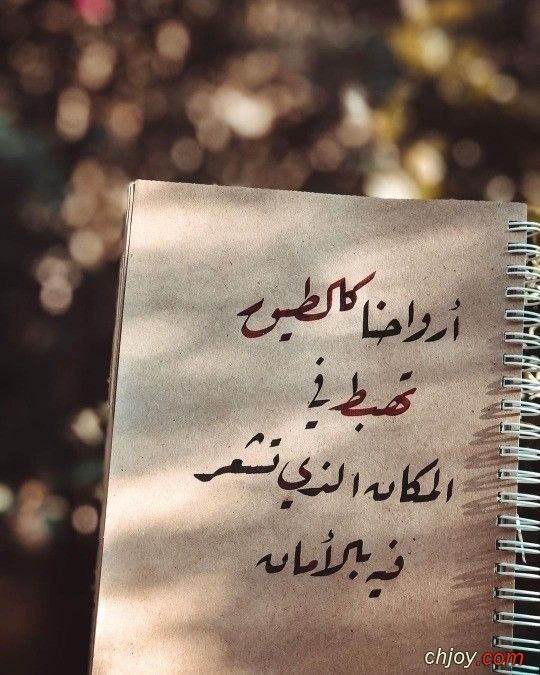 أرواحنا كالطيور
تهبط في
المكان الذي تشعر
فيه بالأمان
chjoy.com